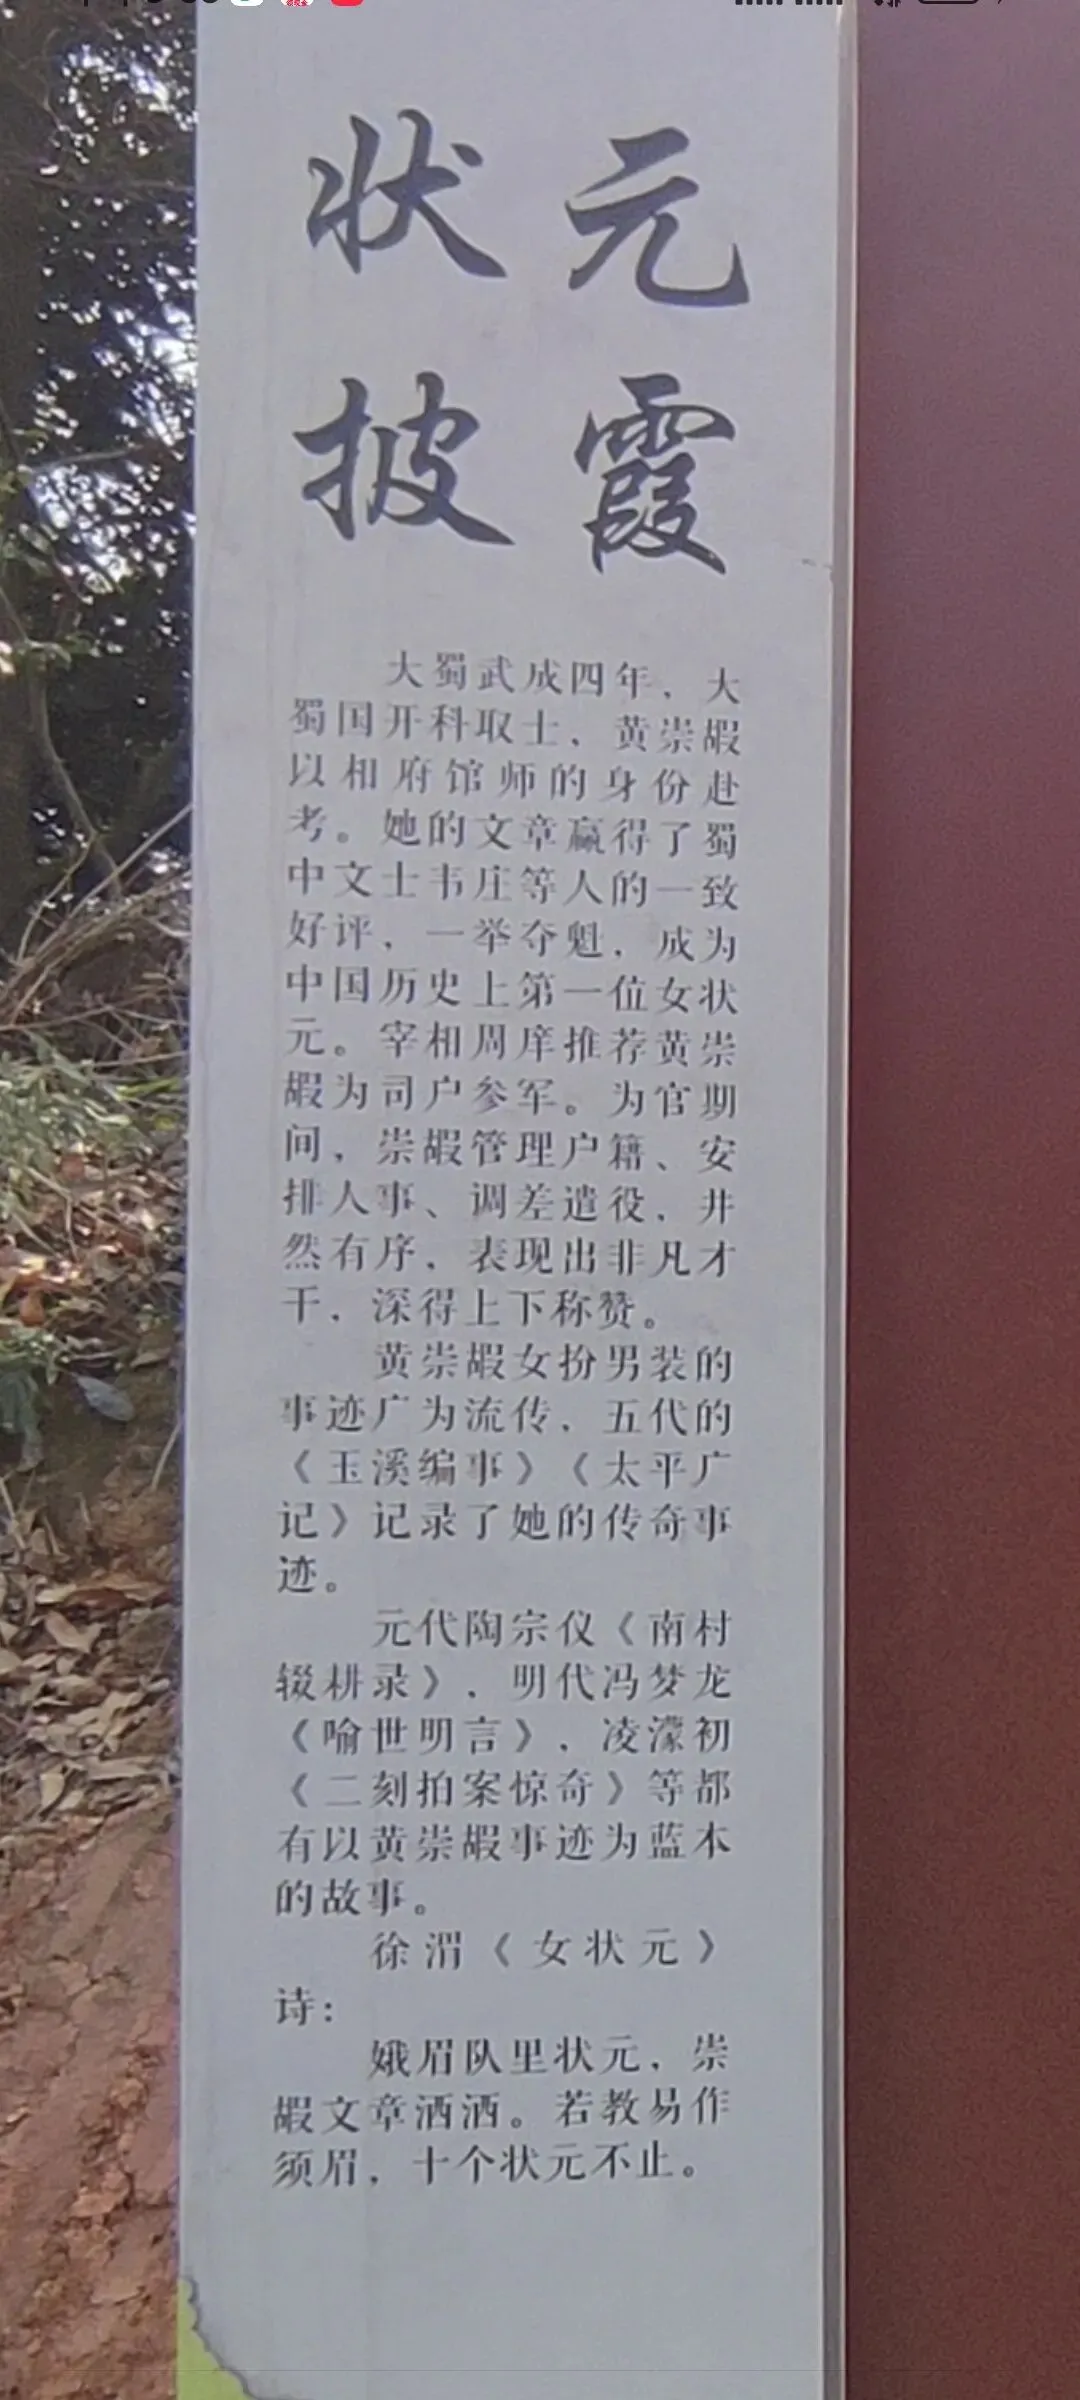 状元
披霞
大蜀武成四年，大
蜀国开科取士，黄崇嘏
以相府馆师的身份赴
考。她的文章赢得了蜀
中文士韦庄等人的一致
好评，一举夺魁，成为
中国历史上第一位女状
元。宰相周庠推荐黄崇
嘏为司户参军。为官期
间，崇嘏管理户籍、安
排人事、调差遣役，井
然有序，表现出非凡才
干，深得上下称赞。
黄崇嘏女扮男装的
事迹广为流传，五代的
《玉溪编事》《太平广
记》记录了她的传奇事
迹。
元代陶宗仪《南村
辍耕录》，明代冯梦龙
《喻世明言》，凌濛初
《二刻拍案惊奇》等都
有以黄崇嘏事迹为蓝本
的故事。
徐渭《女状元》
诗：
娥眉队里状元，崇
嘏文章洒洒。若教易作
须眉，十个状元不止。